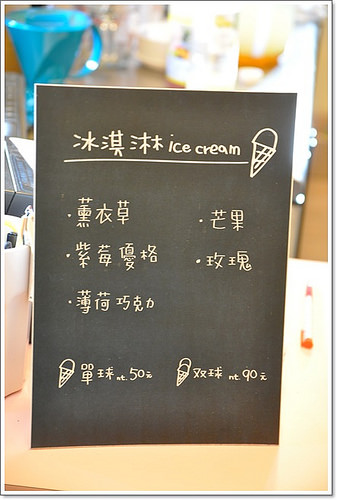 冰淇淋 ice cream
·薰衣草 ·芒果
·紫莓優格 ·玫瑰
·薄荷巧克力
單球 nt.50元 双球 nt.90元